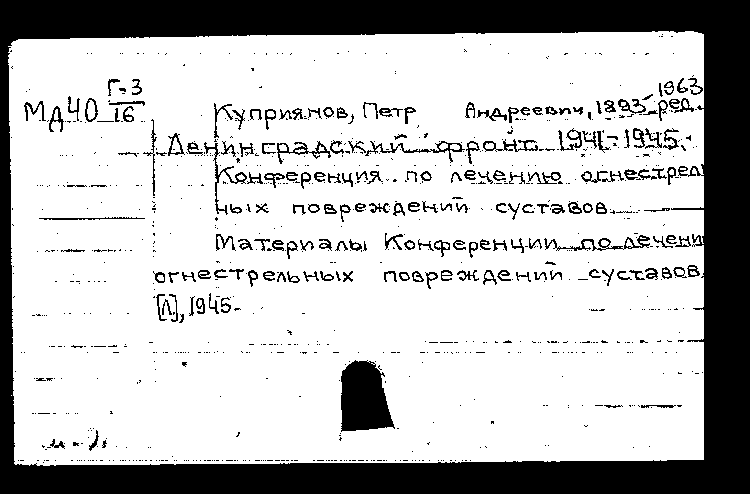 МД40 Г-3/16
Куприянов, Петр Андреевич, 1893-1963 ред.
Ленинградский фронт. 1941-1945.
Конференция по лечению огнестрель
ных повреждений суставов
Материалы Конференции по лечени
огнестрельных повреждений суставов.
[Л], 1945.